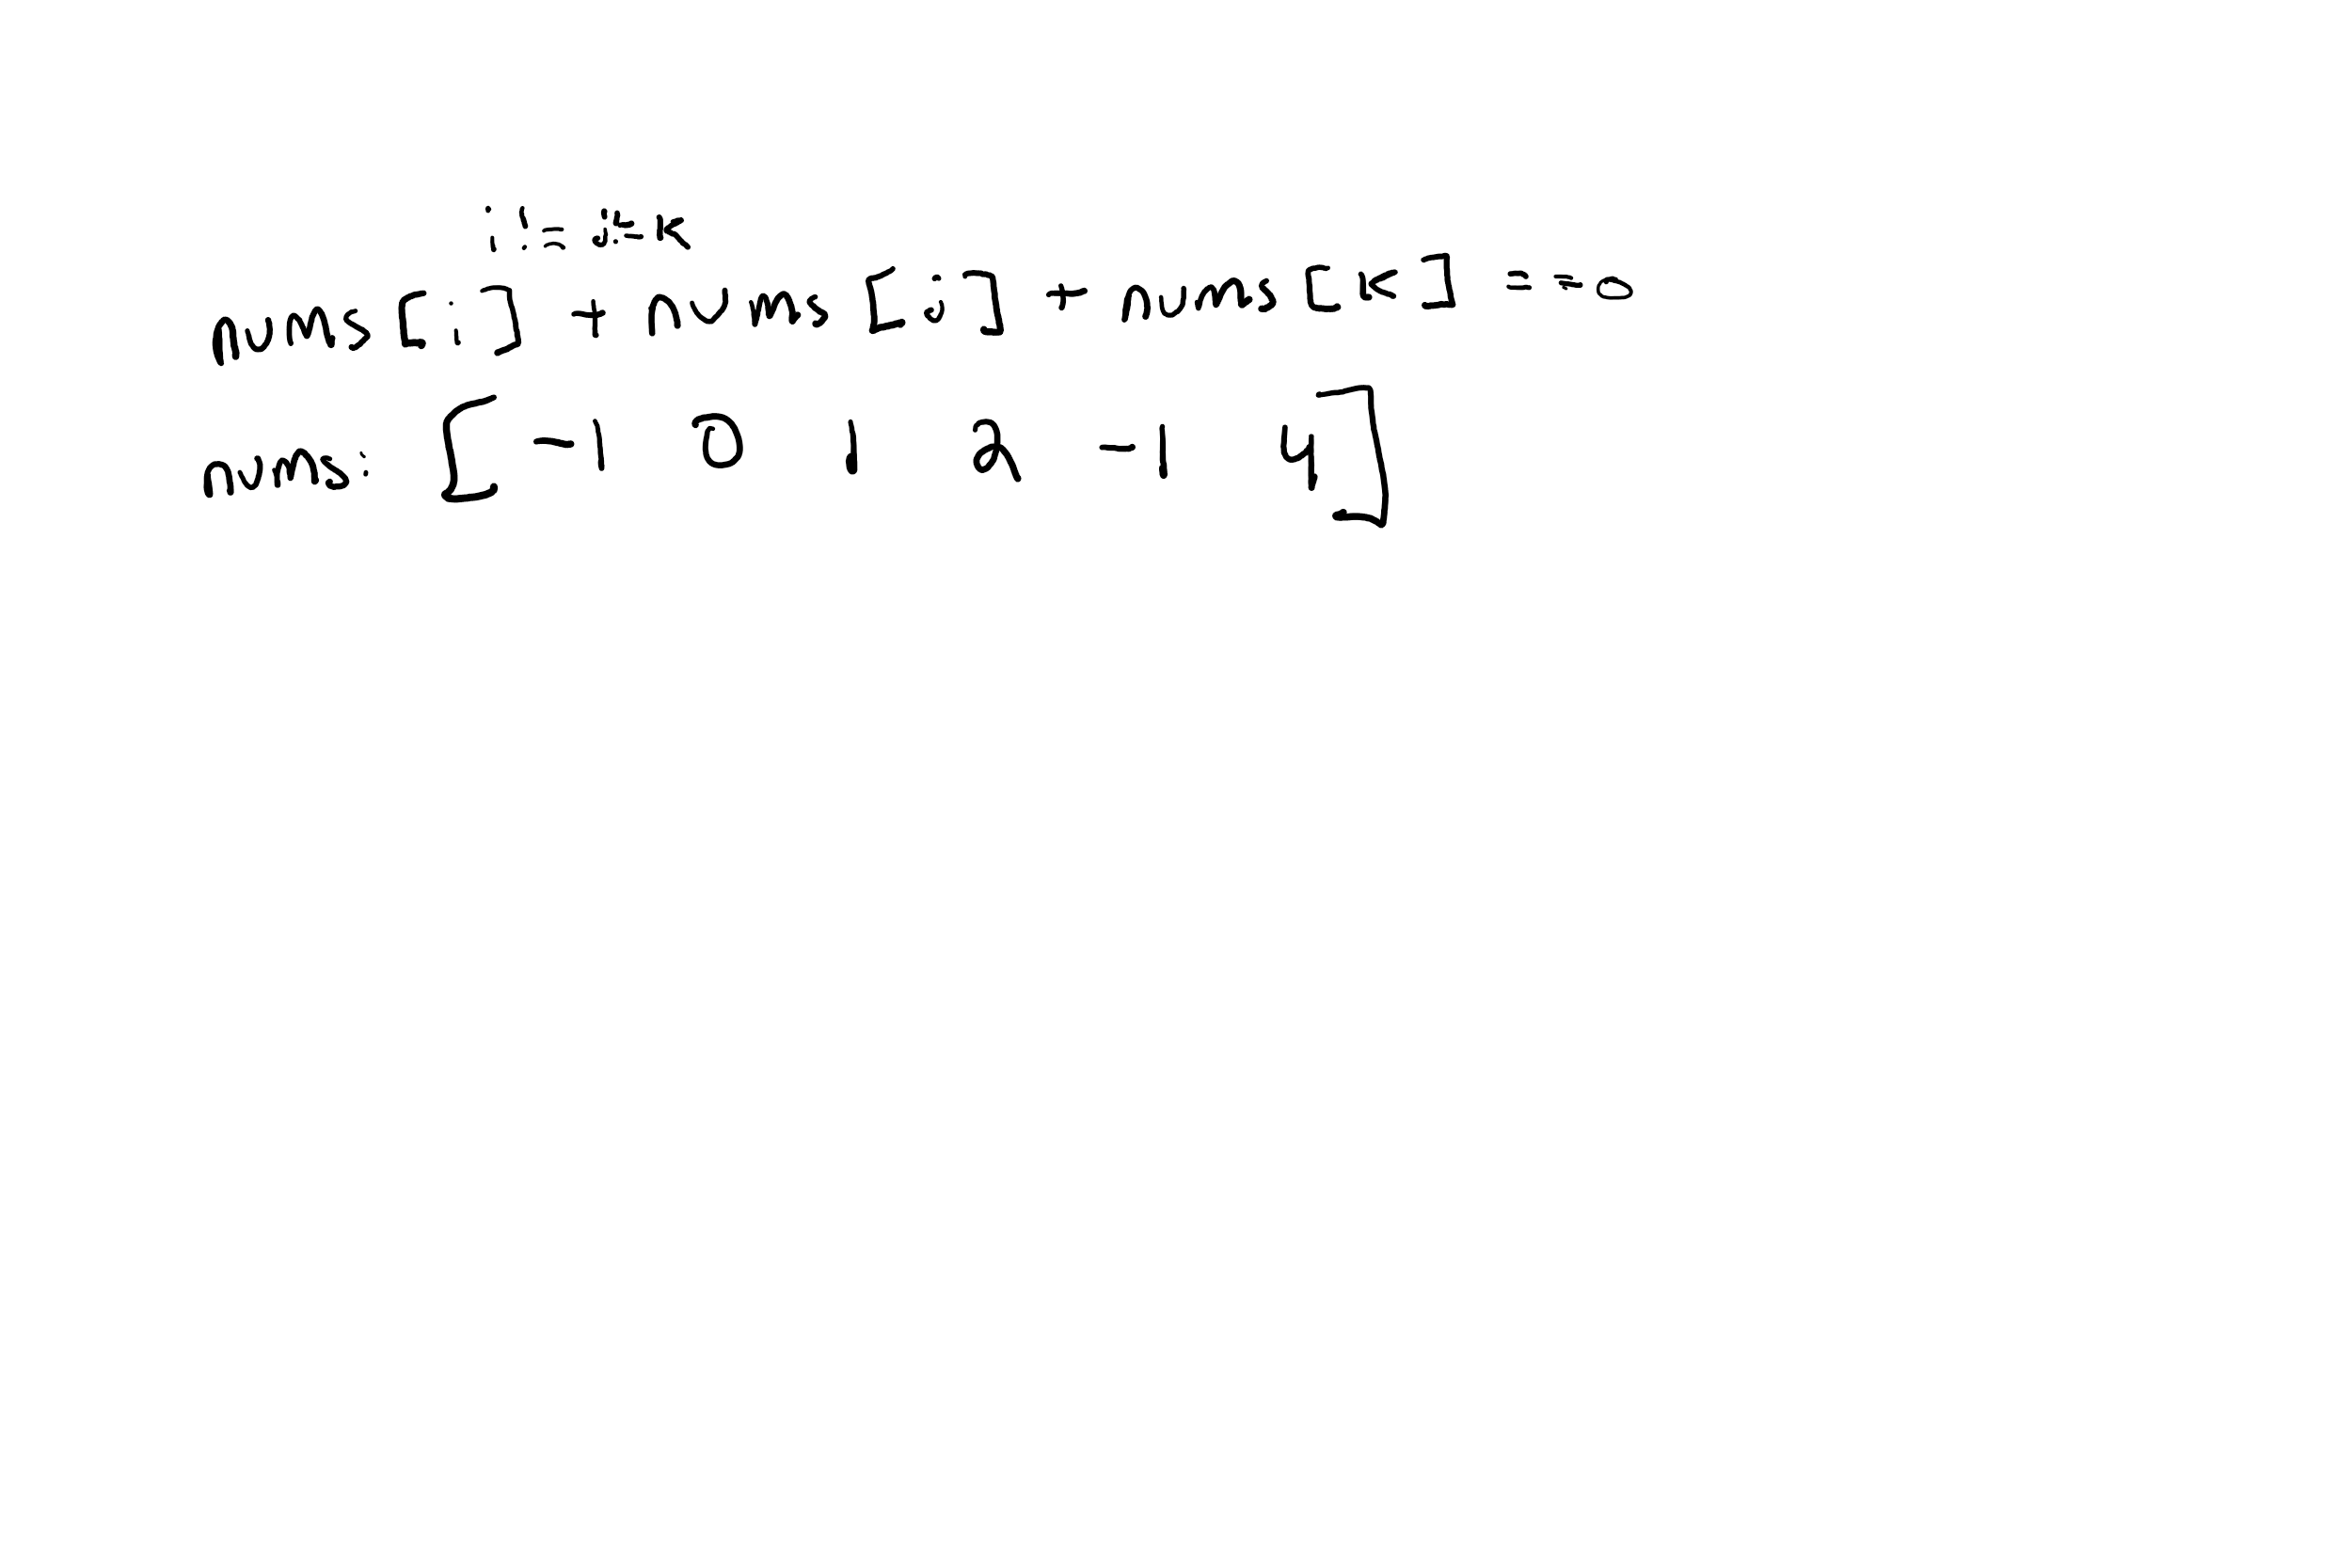 i != j != k
nums[i] + nums[j] + nums[k] == 0
nums: [ -1 0 1 2 -1 4]